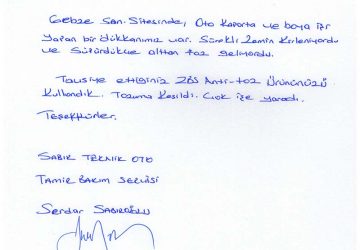 Gebze San. Sitesinde, Oto Kaporta ve boya işi
yapan bir dükkanımız var. Sürekli zemin kirleniyordu
ve süpürdükçe alttan toz geliyordu.
Tavsiye ettiğiniz ZBS Anti-toz Ürününüzü
kullandık. Tozuma kesildi. Çok işe yaradı.
Teşekkürler.
SABIR TEKNİK OTO
TAMİR BAKIM SERVİSİ
Serdar SABIROĞLU